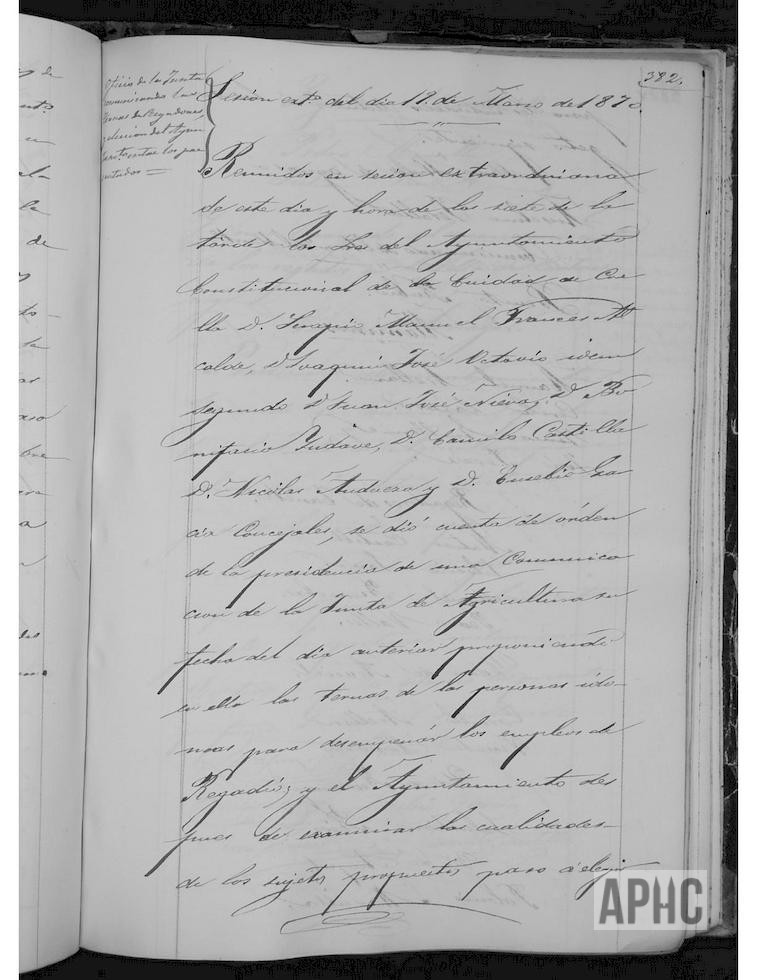 382.
Oficio de la Junta
comunicando las
ternas de Regadores,
y eleccion del Ayun
tamto. entre los pre
sentados =
Sesion exta. del dia 19. de Marzo de 1870.
Reunidos en secion extraordinaria
de este dia y hora de las siete de la
tarde los Sres del Ayuntamiento
Constitucional de la Cuidad de Co
lla D. Serapio Manuel Frances Al
calde, D. Joaquin José Octavio idem
segundo D. Juan José Nieva, D. Bo
nifacio Yudave, D. Camilo Castilla
D. Nicolas Andueza y D. Eusebio Gar
cia Concejales, se dió cuenta de órden
de la presidencia de una Comunica
cion de la Junta de Agricultura su
fecha del dia anterior proponiendo
en ella las ternas de las personas idó-
neas para desempeñar los empleos de
Regadío; y el Ayuntamiento des
pues de examinar las cualidades-
de los sujetos propuestos paso á elegir
APHC